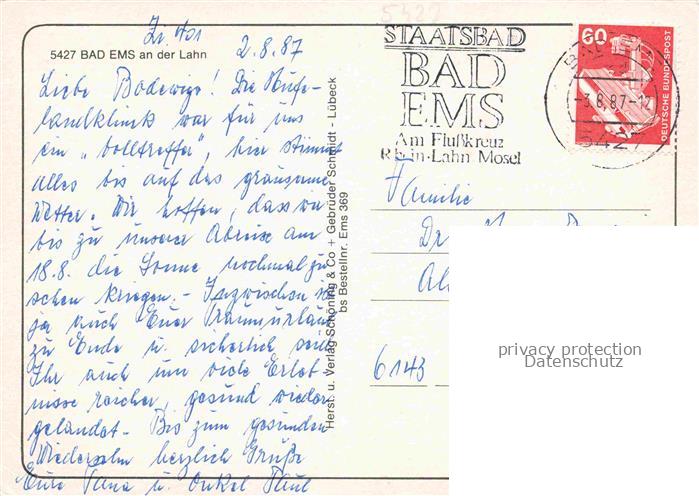 Zi 401
2.8.87
5427 BAD EMS an der Lahn
Liebe Badewige! Die Hufe-
landklinik war für uns
ein „Volltreffer“, hier stimmt
alles bis auf das grausame
Wetter. Wir hoffen, dass wir
bis zu unserer Abreise am
18.8. die Sonne nochmal zu
sehen kriegen. - Inzwischen ist
ja auch Euer Traumurlaub
zu Ende u. sicherlich seid
Ihr auch um viele Erleb-
nisse reicher, gesund wieder
gelandet. - Bis zum gesunden
Wiedersehn herzlich Grüße
Eure Tana u. Onkel Paul
Herst. u. Verlag Schöning & Co + Gebrüder Schmidt - Lübeck
bs Bestellnr. Ems 369
5427
STAATSBAD
BAD
EMS
Am Flußkreuz
Rhein-Lahn Mosel
60
DEUTSCHE BUNDESPOST
-3.8.87-12
Familie
Dr.
6143
privacy protection
Datenschutz